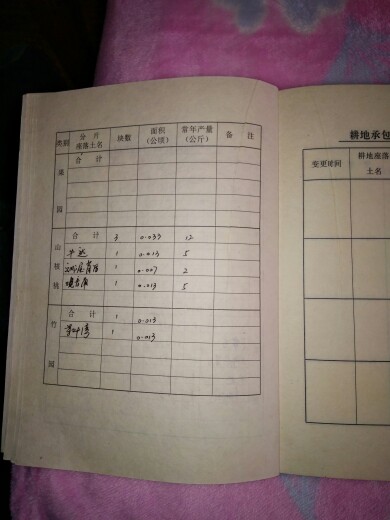 类别 分片座落土名 块数 面积（公顷） 常年产量（公斤） 备注
果园 合计
山核桃 合计 3 0.033 12
1 0.013 5
1 0.007 2
1 0.013 5
竹园 合计 1 0.013
1 0.013
耕地承包
变更时间 耕地座落土名